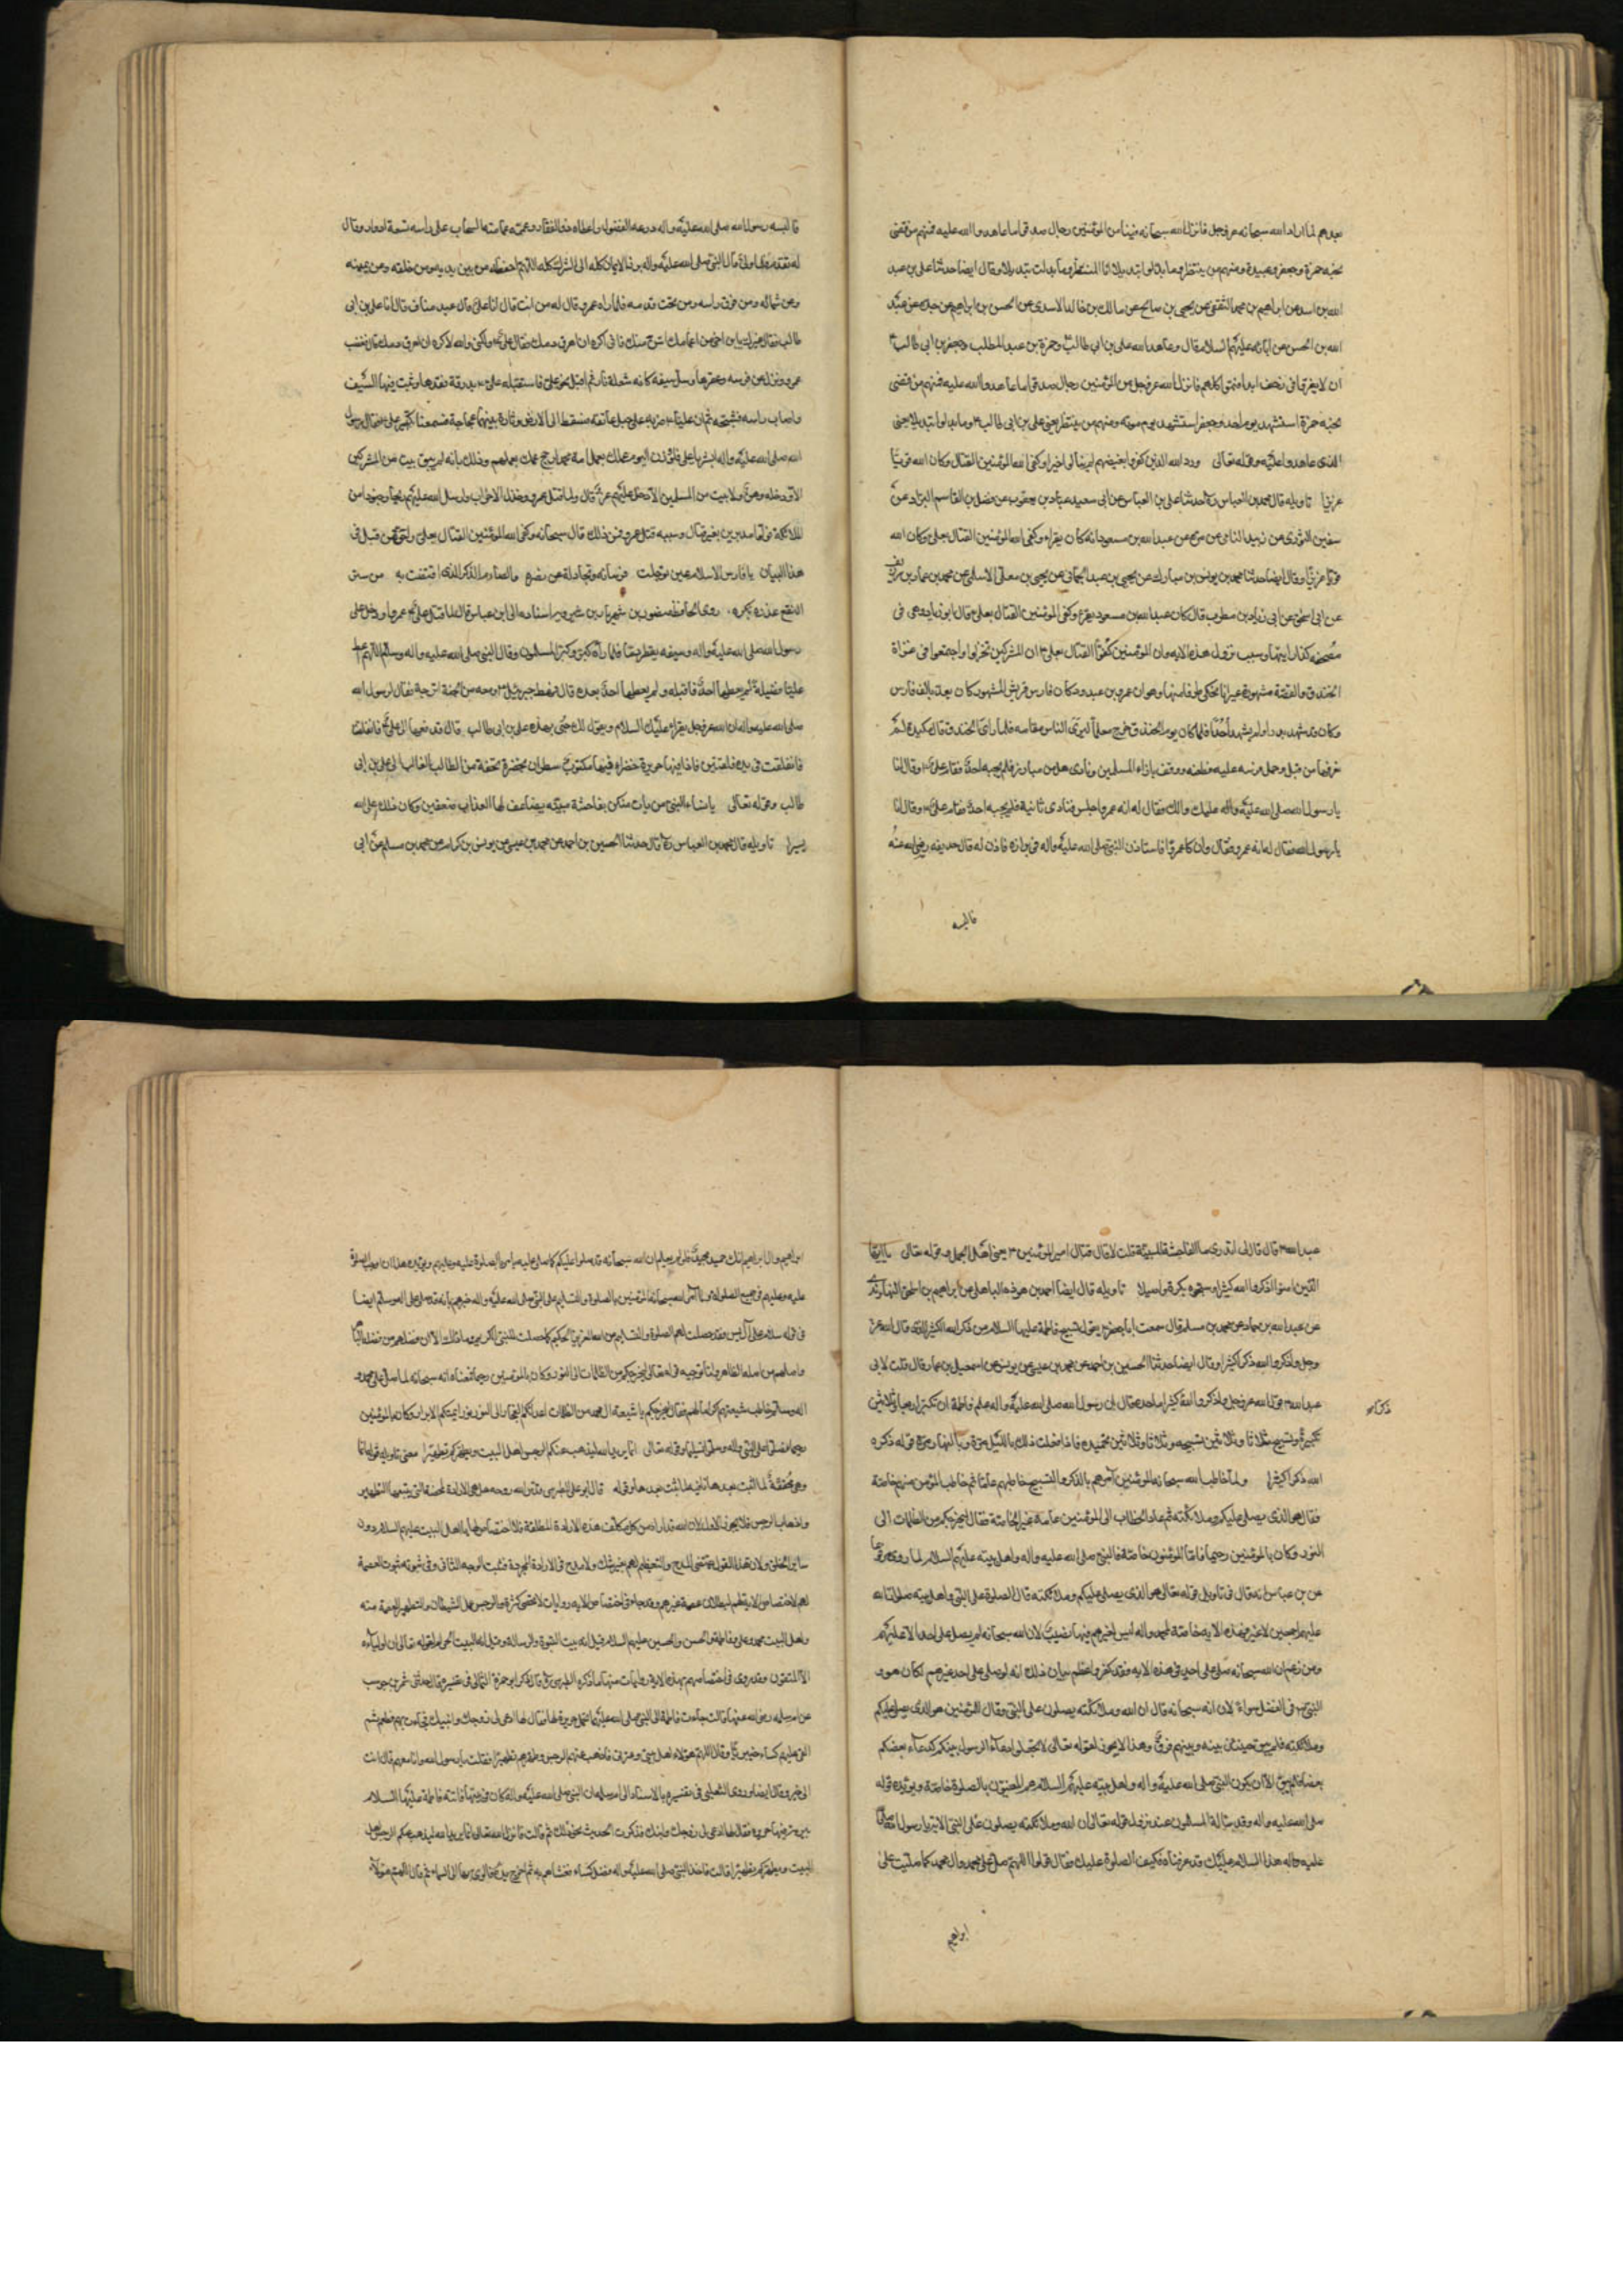 بعدهم لما اراد الله سبحانه عز وجل فانزل الله سبحانه فينا من المؤمنين رجال صدقوا ما عاهدوا الله عليه فمنهم من قضى
نحبه حمزة وجعفر وعبيدة ومنهم من ينتظر وما بدلوا تبديلا فانا المنتظر وما بدلت تبديلا وقال ايضا حدثنا علي بن عبد
الله بن اسد عن ابراهيم بن محمد الثقفي عن يحيى بن صالح عن مالك بن خالد الاسدي عن الحسن بن ابراهيم عن جده عن عبد
الله بن الحسن عن ابائه عليهم السلام قال وعاهد الله علي بن ابي طالب وحمزة بن عبد المطلب وجعفر بن ابي طالب
ان لا يفروا في زحف ابدا فتموا كلهم فانزل الله عز وجل من المؤمنين رجال صدقوا ما عاهدوا الله عليه فمنهم من قضى
نحبه حمزة استشهد يوم احد وجعفر استشهد يوم موته ومنهم من ينتظر يعني علي بن ابي طالب ع وما بدلوا تبديلا يعني
الذي عاهدوا عليه وقوله تعالى ورد الله الذين كفروا بغيضهم لم ينالوا خيرا وكفى الله المؤمنين القتال وكان الله قويا
عزيزا تاويله قال محمد بن العباس ره حدثنا علي بن العباس عن ابي سعيد عباد بن يعقوب عن فضل بن القاسم البزاد عن
سفين الثوري عن زبيد النامي عن مرة عن عبد الله بن مسعود انه كان يقراء وكفى الله المؤمنين القتال بعلي وكان الله
قويا عزيزا وقال ايضا حدثنا محمد بن يونس بن مبارك عن يحيى بن عبد الحماني عن يحيى بن معلى الاسلمي عن محمد بن عمار بن
عن ابي اسحق عن ابي زياد بن مطرب قال كان عبد الله بن مسعود يقرء وكفى المؤمنين القتال بعلي قال ابو زياد وهي في
مصحفه كذا رايتها وسبب نزول هذه الايه وان المؤمنين كفوا القتال بعلي ع ان المشركين تحزبوا واجتمعوا في غزاة
الخندق والقصة مشهورة غير انا نحكي طرفا منها وهو ان عمرو بن عبدود كان فارس قريش المشهور كان يعد بالف فارس
وكان قد شهد بدرا ولم يشهد احدا فلما كان يوم الخندق خرج معلما ليرى الناس مقامه فلما راى الخندق قال مكيدة لم
نعرفها من قبل وحمل فرسه عليه فطفنه ووقف بازاء المسلمين ونادى هل من مبارز فلم يجبه احد فقام علي ع وقال انا
يا رسول الله صلى الله عليه واله عليك والك فقال له انه عمرو اجلس فنادى ثانية فلم يجبه احد فقام علي ع وقال انا
يا رسول الله فقال له انه عمرو فقال وان كان عمروا فاستاذن النبي صلى الله عليه واله في برازه فاذن له قال حديفه رضي الله عنه
فالبسه
فالبسه رسول الله صلى الله عليه واله درعه الفضول واعطاه ذو الفقار وعممه عمامته السحاب على راسه تسعة ادوار وقال
له تقدم فلما ولى قال النبي صلى الله عليه واله برز الايمان كله الى الشرك كله اللهم احفظه من بين يديه ومن خلفه وعن يمينه
وعن شماله ومن فوق راسه ومن تحت قدميه فلما راه عمرو قال له من انت قال انا علي قال عبد مناف قال انا علي بن ابي
طالب فقال غيرك يا بن اخي من اعمامك اسن منك فاني اكره ان اهرق دمك فقال علي ع ولكني والله لا اكره ان اهرق دمك قال فغضب
عمرو ونزل عن فرسه وعقرها وسل سيفه كانه شعلة نار ثم اقبل نحو علي فاستقبله علي ع بدرقة فقدها وثبت فيها السيف
واصاب راسه فشجه ثم ان عليا ع ضربه على حبل عاتقه فسقط الى الارض وثارت بينهما عجاجة فسمعنا تكبير علي ع فقال رسول
الله صلى الله عليه واله ابشر يا علي فلو وزن اليوم عملك بعمل امة محمد لرجح عملك بعملهم وذلك بانه لم يبق بيت من المشركين
الا ودخله وهن ولا بيت من المسلمين الا دخل عليهم عز قال ولما قتل عمرو وخذل الاحزاب وارسل الله عليهم ريحا وجنودا من
الملائكة فولوا مدبرين بغير قتال وسببه قتل عمرو فمن ذلك قال سبحانه وكفى الله المؤمنين القتال بعلي
هذا البيان يا فارس الاسلام حين توجلت فرسانه
روى الحافظ منصور بن شهريار بن شيرويه باسناده الى ابن عباس قال لما قتل علي ع عمروا ودخل على
رسول الله صلى الله عليه واله وسيفه يقطر دما فلما راه كبر وكبر المسلمون وقال النبي صلى الله عليه واله وسلم اللهم اعط
عليا فضيلة لم تعطها احدا قبله ولم تعطها احدا بعده قال فهبط جبرئيل ع ومعه من الجنة اترجة فقال لرسول الله
صلى الله عليه واله ان الله عز وجل يقراء عليك السلام ويقول لك حي بهذه علي بن ابي طالب قال فدفعها الى علي ع فانفلقت
فانفلقت في يده فلقتين فاذا فيها حريرة خضراء فيها مكتوب سطران بخضرة تحفة من الطالب الغالب الى علي بن ابي
طالب وقوله تعالى يا نساء النبي من يات منكن بفاحشة مبينة يضاعف لها العذاب ضعفين وكان ذلك على الله
يسيرا تاويله قال محمد بن العباس ره قال حدثنا الحسين بن احمد عن محمد بن عيسى عن يونس بن كرام عن محمد بن مسلم عن ابي
عبد الله ع قال قال لي اتدري ما الفاحشة المبينة قلت لا قال قتال امير المؤمنين ع يعني اهل الجمل وقوله تعالى يا ايها
الذين امنوا اذكروا الله كثيرا وسبحوه بكرة واصيلا تاويله قال ايضا احمد بن هوذه الباهلي عن ابراهيم بن اسحق النهاوندي
عن عبد الله بن حماد عن محمد بن مسلم قال سمعت ابا جعفر ع يقول تسبيح فاطمة عليها السلام من ذكر الله الكثير الذي قال الله عز
وجل واذكروا الله ذكرا كثيرا وقال ايضا حدثنا الحسين بن احمد عن محمد بن عيسى عن يونس عن اسمعيل بن عمار قال قلت لابي
عبد الله ع قول الله عز وجل واذكروا الله كثيرا ما حده قال ان رسول الله صلى الله عليه واله علم فاطمة ان تكبر اربعا وثلاثين
ذكرا
تكبيرة وتسبح ثلاثا وثلاثين تسبيحه وثلاثا وثلاثين تحميده فاذا فعلت ذلك بالليل مرة وبالنهار مرة قوله ذكره
الله ذكرا كثيرا ولما خاطب الله سبحانه المؤمنين امرهم بالذكر والتسبيح خاطبهم عاما ثم خاطب المؤمن منهم خاصة
فقال هو الذي يصلي عليكم وملائكته ثم عاد الخطاب الى المؤمنين عامة غير الخاصة فقال ليخرجكم من الظلمات الى
النور وكان بالمؤمنين رحيما فاما المؤمنون خاصة فالنبي صلى الله عليه واله واهل بيته عليهم السلام لما روى مرفوعا
عن بن عباس انه قال في تاويل قوله تعالى هو الذي يصلي عليكم وملائكته قال الصلوة على النبي واهل بيته صلوات الله
عليهم اجمعين لا غير فهذه الايه خاصة لمحمد واله ليس لغيرهم فيها نصيب لان الله سبحانه لم يصل على احد الا عليهم
ومن زعم ان الله سبحانه صلى على احد في هذه الايه فقد كفر واعظم بيان ذلك انه لو صلى على احد غيرهم لكان هو و
النبي ع في الفضل سواء لان انه سبحانه قال ان الله وملائكته يصلون على النبي وقال للمؤمنين هو الذي يصلي عليكم
وملائكته فلم يبق حينئذ بينه وبينهم فرق وهذا لا يجوز لقوله تعالى لا تجعلوا دعاء الرسول بينكم كدعاء بعضكم
بعضا فلم يبق الا ان يكون النبي صلى الله عليه واله واهل بيته عليهم السلام هم المعنيون بالصلوة خاصة ويؤيده قوله
صلى الله عليه واله وقد ساله المسلمون عند نزول قوله تعالى ان الله وملائكته يصلون على النبي الاية يا رسول الله
عليه واله هذا السلام عليك قد عرفناه فكيف الصلوة عليك فقال قولوا اللهم صل على محمد وال محمد كما صليت على
ابراهيم
ابراهيم وال ابراهيم انك حميد مجيد
عليه وعليهم في جميع الصلوات ولما امر الله سبحانه المؤمنين بالصلوة والتسليم على النبي صلى الله عليه واله
في قوله سلام على آل يس فقد حصلت لهم الصلوة والتسليم من الله العزيز الحكيم كما حصلت للنبي الكريم وما ذلك الا لان فضلهم من فضله
ليخرجكم من الظلمات الى النور وكان بالمؤمنين رحيما
وقوله تعالى انما يريد الله ليذهب عنكم الرجس اهل البيت ويطهركم تطهيرا معنى تاويله
لما اثبت بعدها نافية لما لم تثبت بعدها وقوله قال ابو علي الطبرسي قدس الله روحه
واذهاب الرجس فلا يجوز الاول لان الله قد اراد من كل مكلف هذه الارادة المطلقة فلا اختصاص لها باهل البيت عليهم السلام دون
ساير الخلق ولان هذا القول يقتضي المدح والتعظيم لهم بغير شك ولا مدح في الارادة المجردة فثبت الوجه الثاني وفي ثبوته ثبوت العصمة
واهل البيت محمد وعلي وفاطمة والحسن والحسين عليهم السلام
الا المتقون وقد روى في اختصاصهم بهذه الاية روايات منها ما ذكره الطبرسي ره قال ذكر ابو حمزة الثمالي في تفسيره قال حدثني شهر بن حوشب
عن ام سلمه رضي الله عنها قالت جاءت فاطمة الى النبي صلى الله عليه واله تحمل حريرة لها فقال لها ادعي لي زوجك وابنيك فجاءت بهم فطعموا ثم
القى عليهم كساء خيبريا وقال اللهم هؤلاء اهل بيتي وعترتي فاذهب عنهم الرجس وطهرهم تطهيرا فقلت يا رسول الله وانا معهم قال انت
الى خير وقال ايضا وروى الثعلبي في تفسيره بالاسناد الى ام سلمه ان النبي صلى الله عليه واله كان في بيتها فاتته فاطمة عليها السلام
ببرمة فيها حريره فقال لها ادعي لي زوجك وابنيك فذكرت الحديث نحو ذلك ثم قالت فانزل الله تعالى انما يريد الله ليذهب عنكم الرجس اهل
البيت ويطهركم تطهيرا قالت فاخذ النبي صلى الله عليه واله فضل كساء فغشاهم به ثم اخرج يده فالوى بها الى السماء ثم قال اللهم هؤلاء